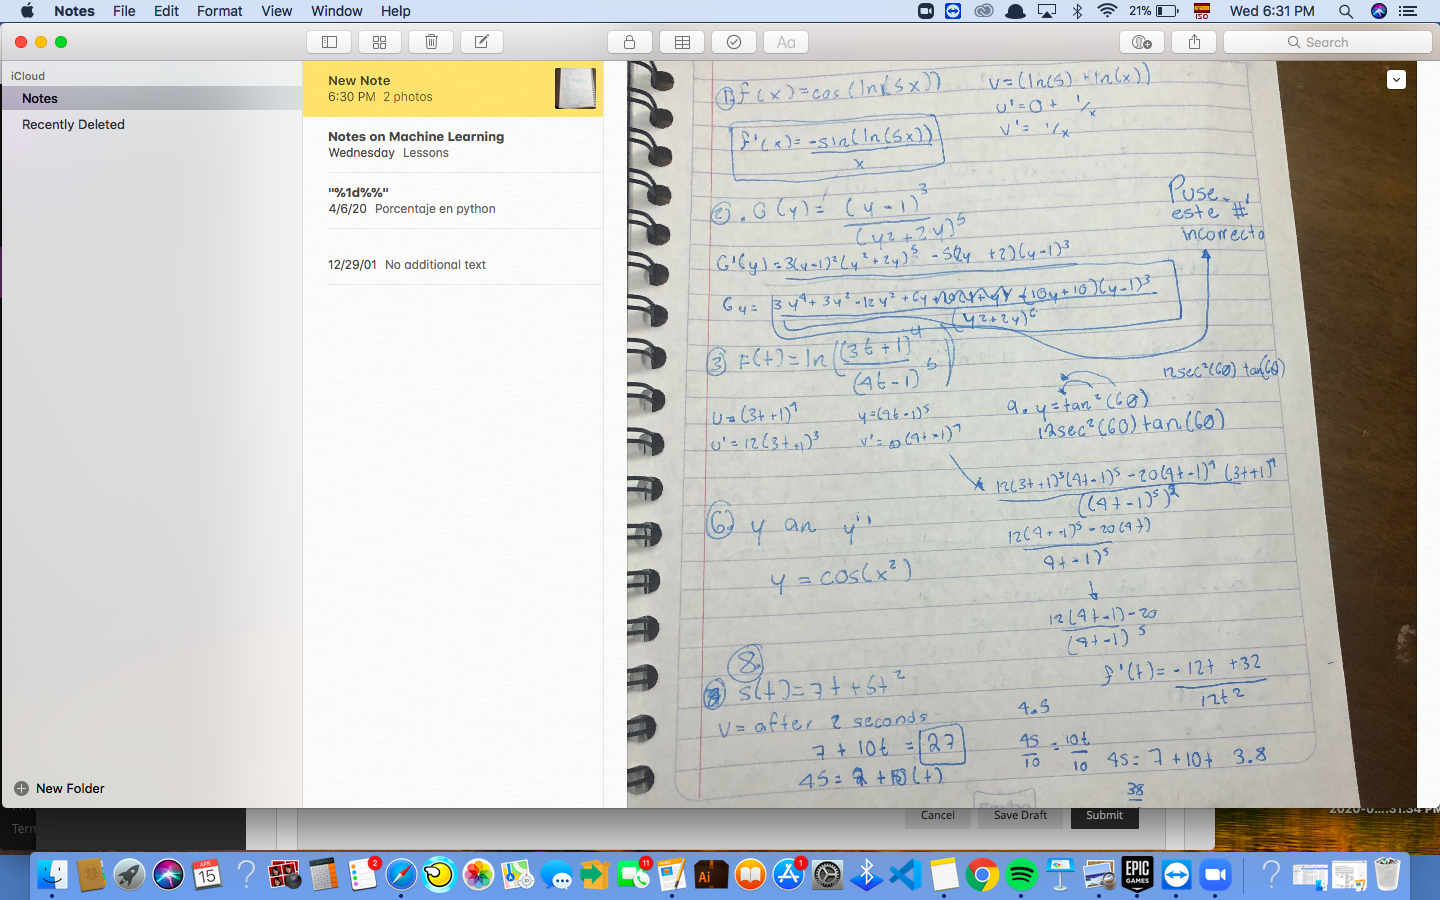 Notes File Edit Format View Window Help
21% ISO Wed 6:31 PM
Aa
Search
iCloud
Notes
Recently Deleted
New Folder
New Note
6:30 PM 2 photos
Notes on Machine Learning
Wednesday Lessons
"%1d%%"
4/6/20 Porcentaje en python
12/29/01 No additional text
1. f(x)=cos(ln(5x)) v=(ln(5)+ln(x))
u'=0+ 1/x
v'= 1/x
f'(x)= -sin(ln(5x))
x
Puse
este #
incorrecto
2. G(y)= (y-1)^3
(y2+2y)^5
G'(y)=3(y-1)^2(y^2+2y)^5 -5(2y +2)(y-1)^3
Gy= 3y^4+3y^2-12y^2+6y (10y+10)(y-1)^3
(y2+2y)^6
3 F(t)=ln((3t+1)^4
(4t-1)^5)
12sec^2(6θ) tan(6θ)
u=(3t+1)^4 y=(4t-1)^5
u'=12(3t+1)^3
9. y=tan^2(6θ)
12sec^2(6θ)tan(6θ)
12(3t+1)^3(4t-1)^5-20(4t-1)^4 (3t+1)^4
((4t-1)^5)^2
6. y an y''
12(4t-1)^5-20(4t)
4t-1)^5
y = cos(x^2)
12(4t-1)-20
(4t-1)^5
8.
s(t)=7t+5t^2
f'(t)= -12t+32
12t^2
v= after 2 seconds
4.5
7+10t = 27
45 = 10t
10 10
45= 7+10t 3.8
38
Cancel Save Draft Submit
Term
APR
15
2
11
1
Ai
EPIC
GAMES